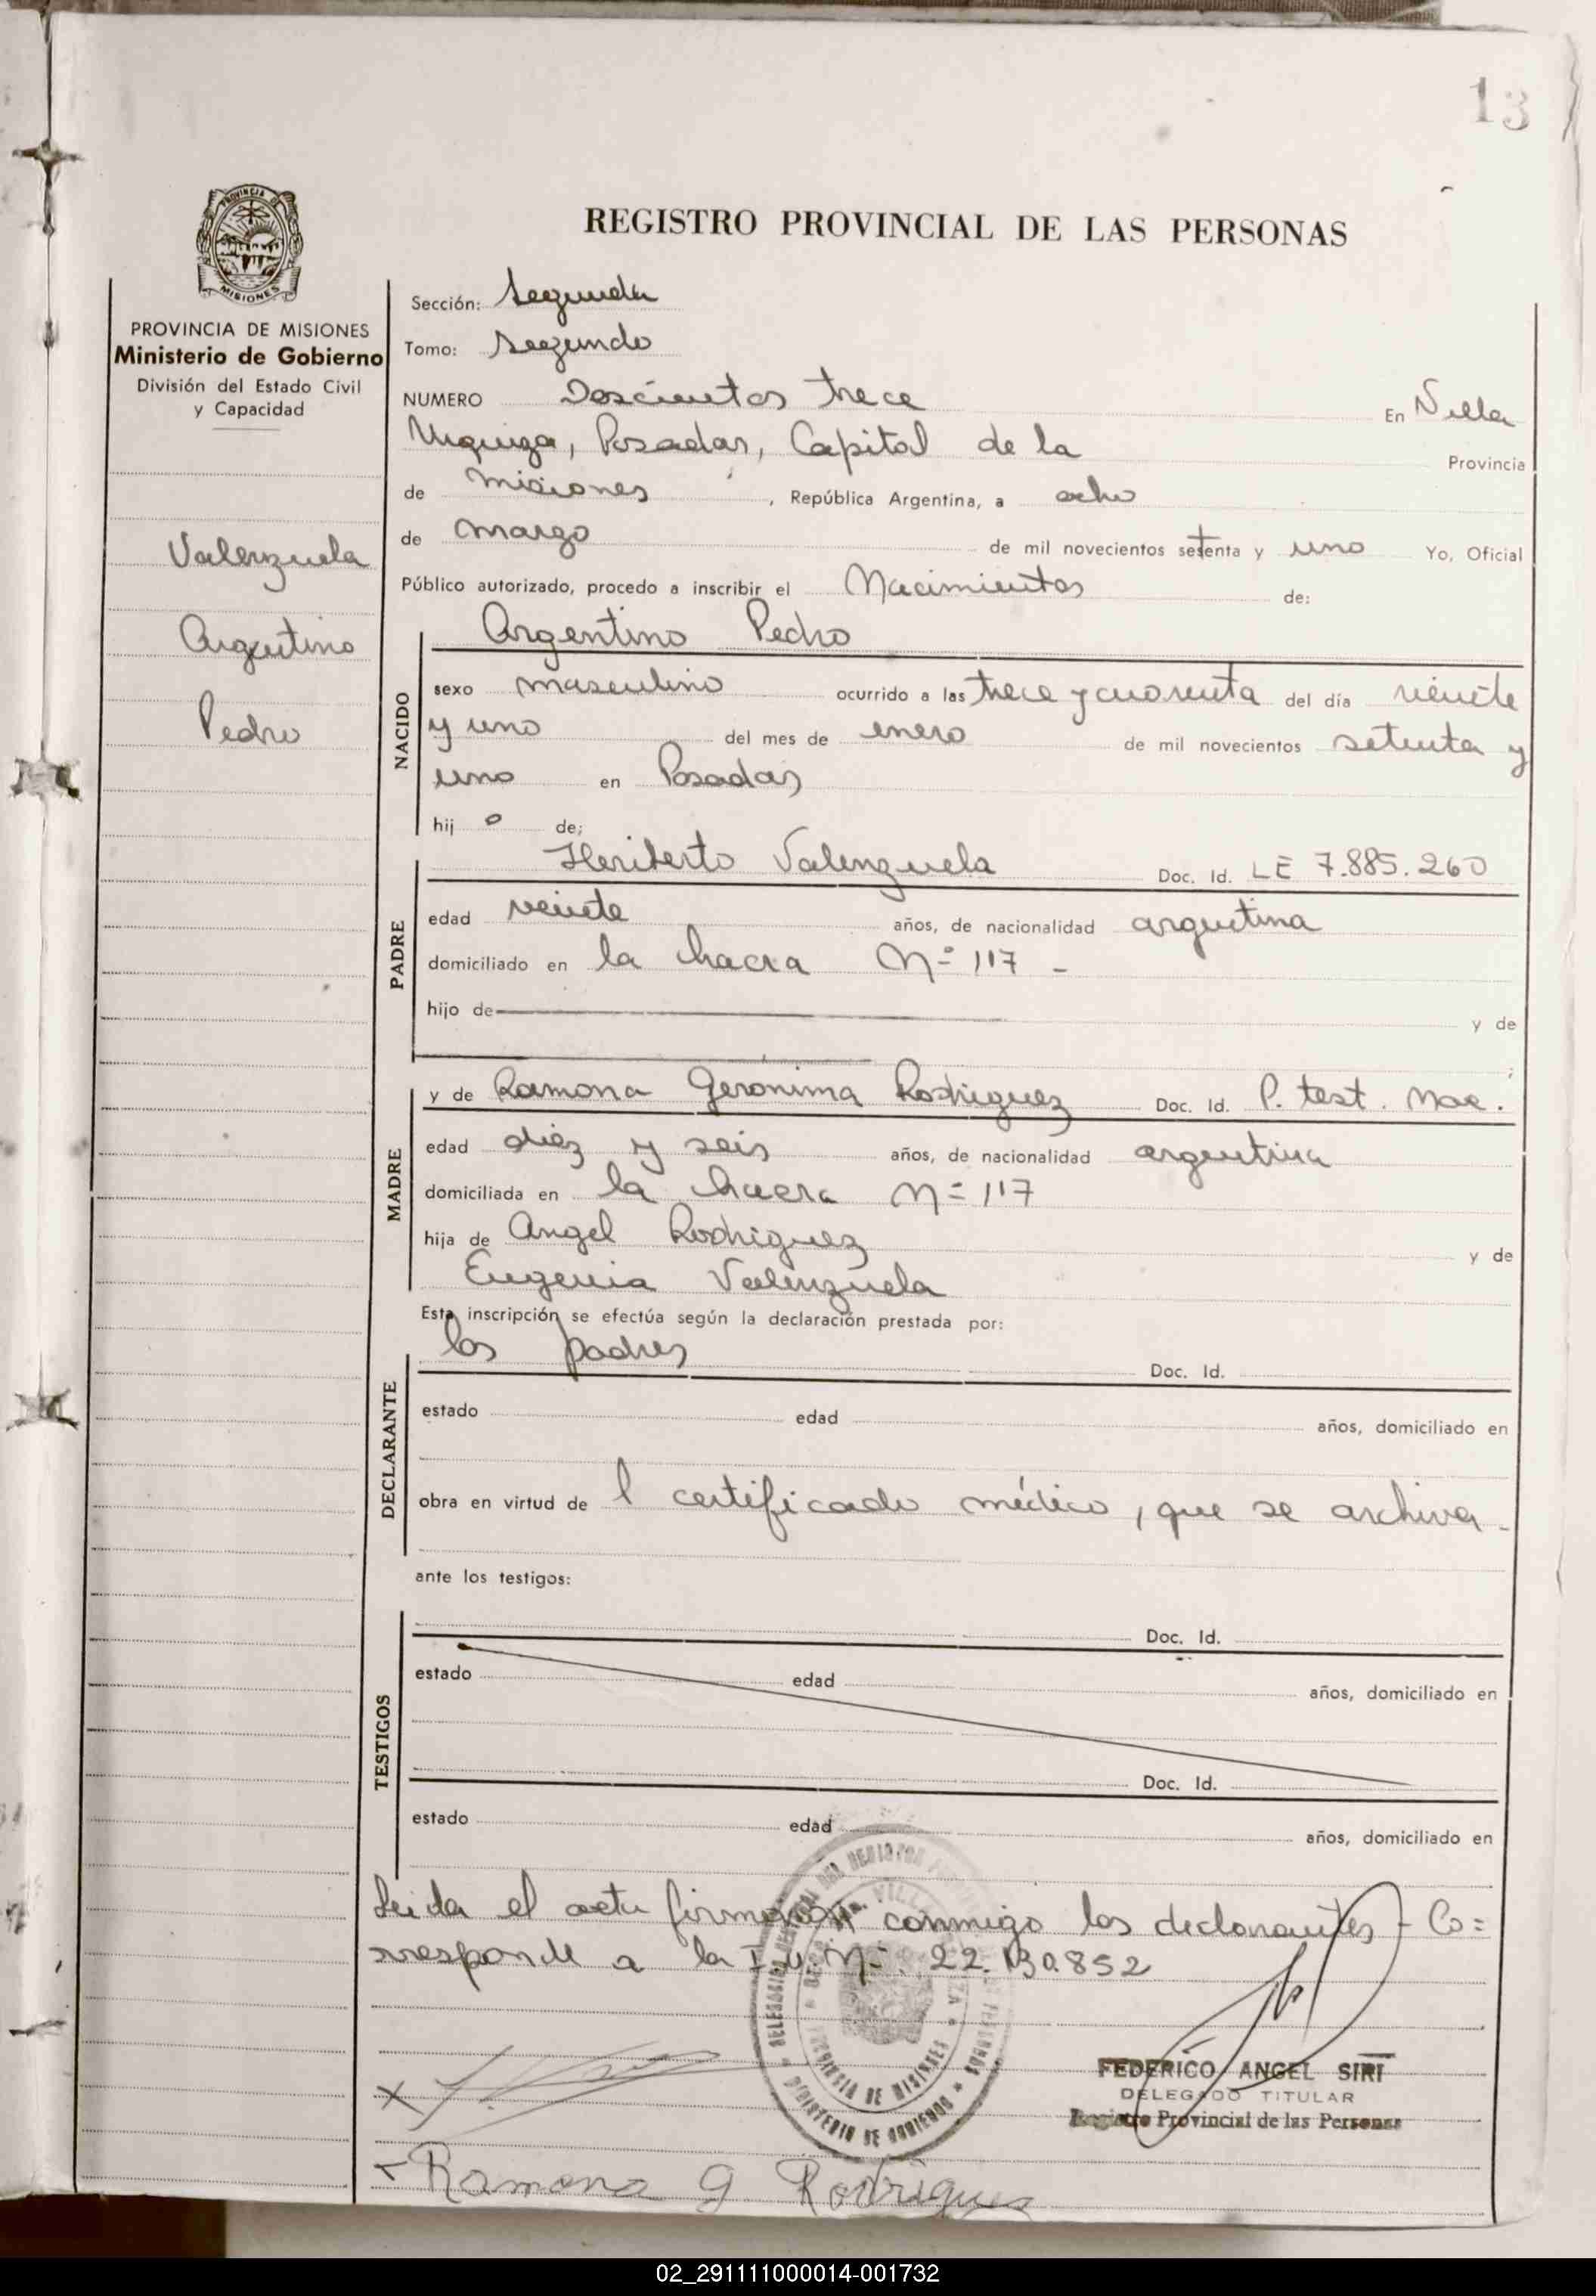 13
PROVINCIA DE
MISIONES
REGISTRO PROVINCIAL DE LAS PERSONAS
PROVINCIA DE MISIONES
Ministerio de Gobierno
División del Estado Civil
y Capacidad
Valenzuela
Argentino
Pedro
Sección: Segunda
Tomo: Segundo
NUMERO Doscientos trece En Villa
Urquiza, Posadas, Capital de la Provincia
de Misiones, República Argentina, a ocho
de marzo de mil novecientos setenta y uno Yo, Oficial
Público autorizado, procedo a inscribir el Nacimientos de:
Argentino Pedro
NACIDO
sexo masculino ocurrido a las trece y cuarenta del día veinte
y uno del mes de enero de mil novecientos setenta y
uno en Posadas
hij o de;
Heriberto Valenzuela Doc. Id. LE 7.885.260
PADRE
edad veinte años, de nacionalidad argentina
domiciliado en la chacra Nº 117 -
hijo de y de
;
y de Ramona Gerónima Rodriguez Doc. Id. P. test. Nac.
MADRE
edad diez y seis años, de nacionalidad argentina
domiciliada en la chacra Nº 117
hija de Angel Rodriguez y de
Eugenia Valenzuela
Esta inscripción se efectúa según la declaración prestada por:
los padres Doc. Id.
DECLARANTE
estado edad años, domiciliado en
obra en virtud de l certificado médico, que se archiva.
ante los testigos:
Doc. Id.
TESTIGOS
estado edad años, domiciliado en
Doc. Id.
estado edad años, domiciliado en
Leida el acta firmaron conmigo los declarantes - Co=
rresponde a la I.U.Nº 22.130.852
PROVINCIA DE MISIONES
MINISTERIO DE GOBIERNO
FEDERICO ANGEL SIRI
DELEGADO TITULAR
Registro Provincial de las Personas
Ramona G Rodrigues
02_291111000014-001732